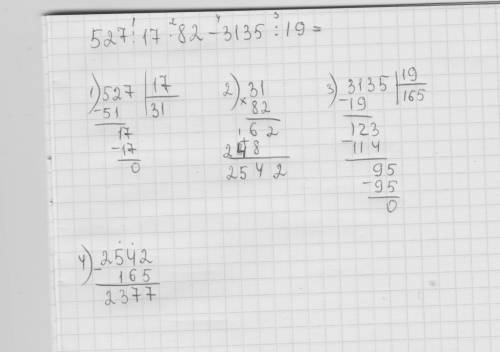 1 2 4 3
527:17·82-3135:19=
1) 527 | 17
-51 31
17
-17
0
2) 31
× 82
62
248
2542
3) 3135 | 19
-19 165
123
-114
95
-95
0
4) -2542
165
2377